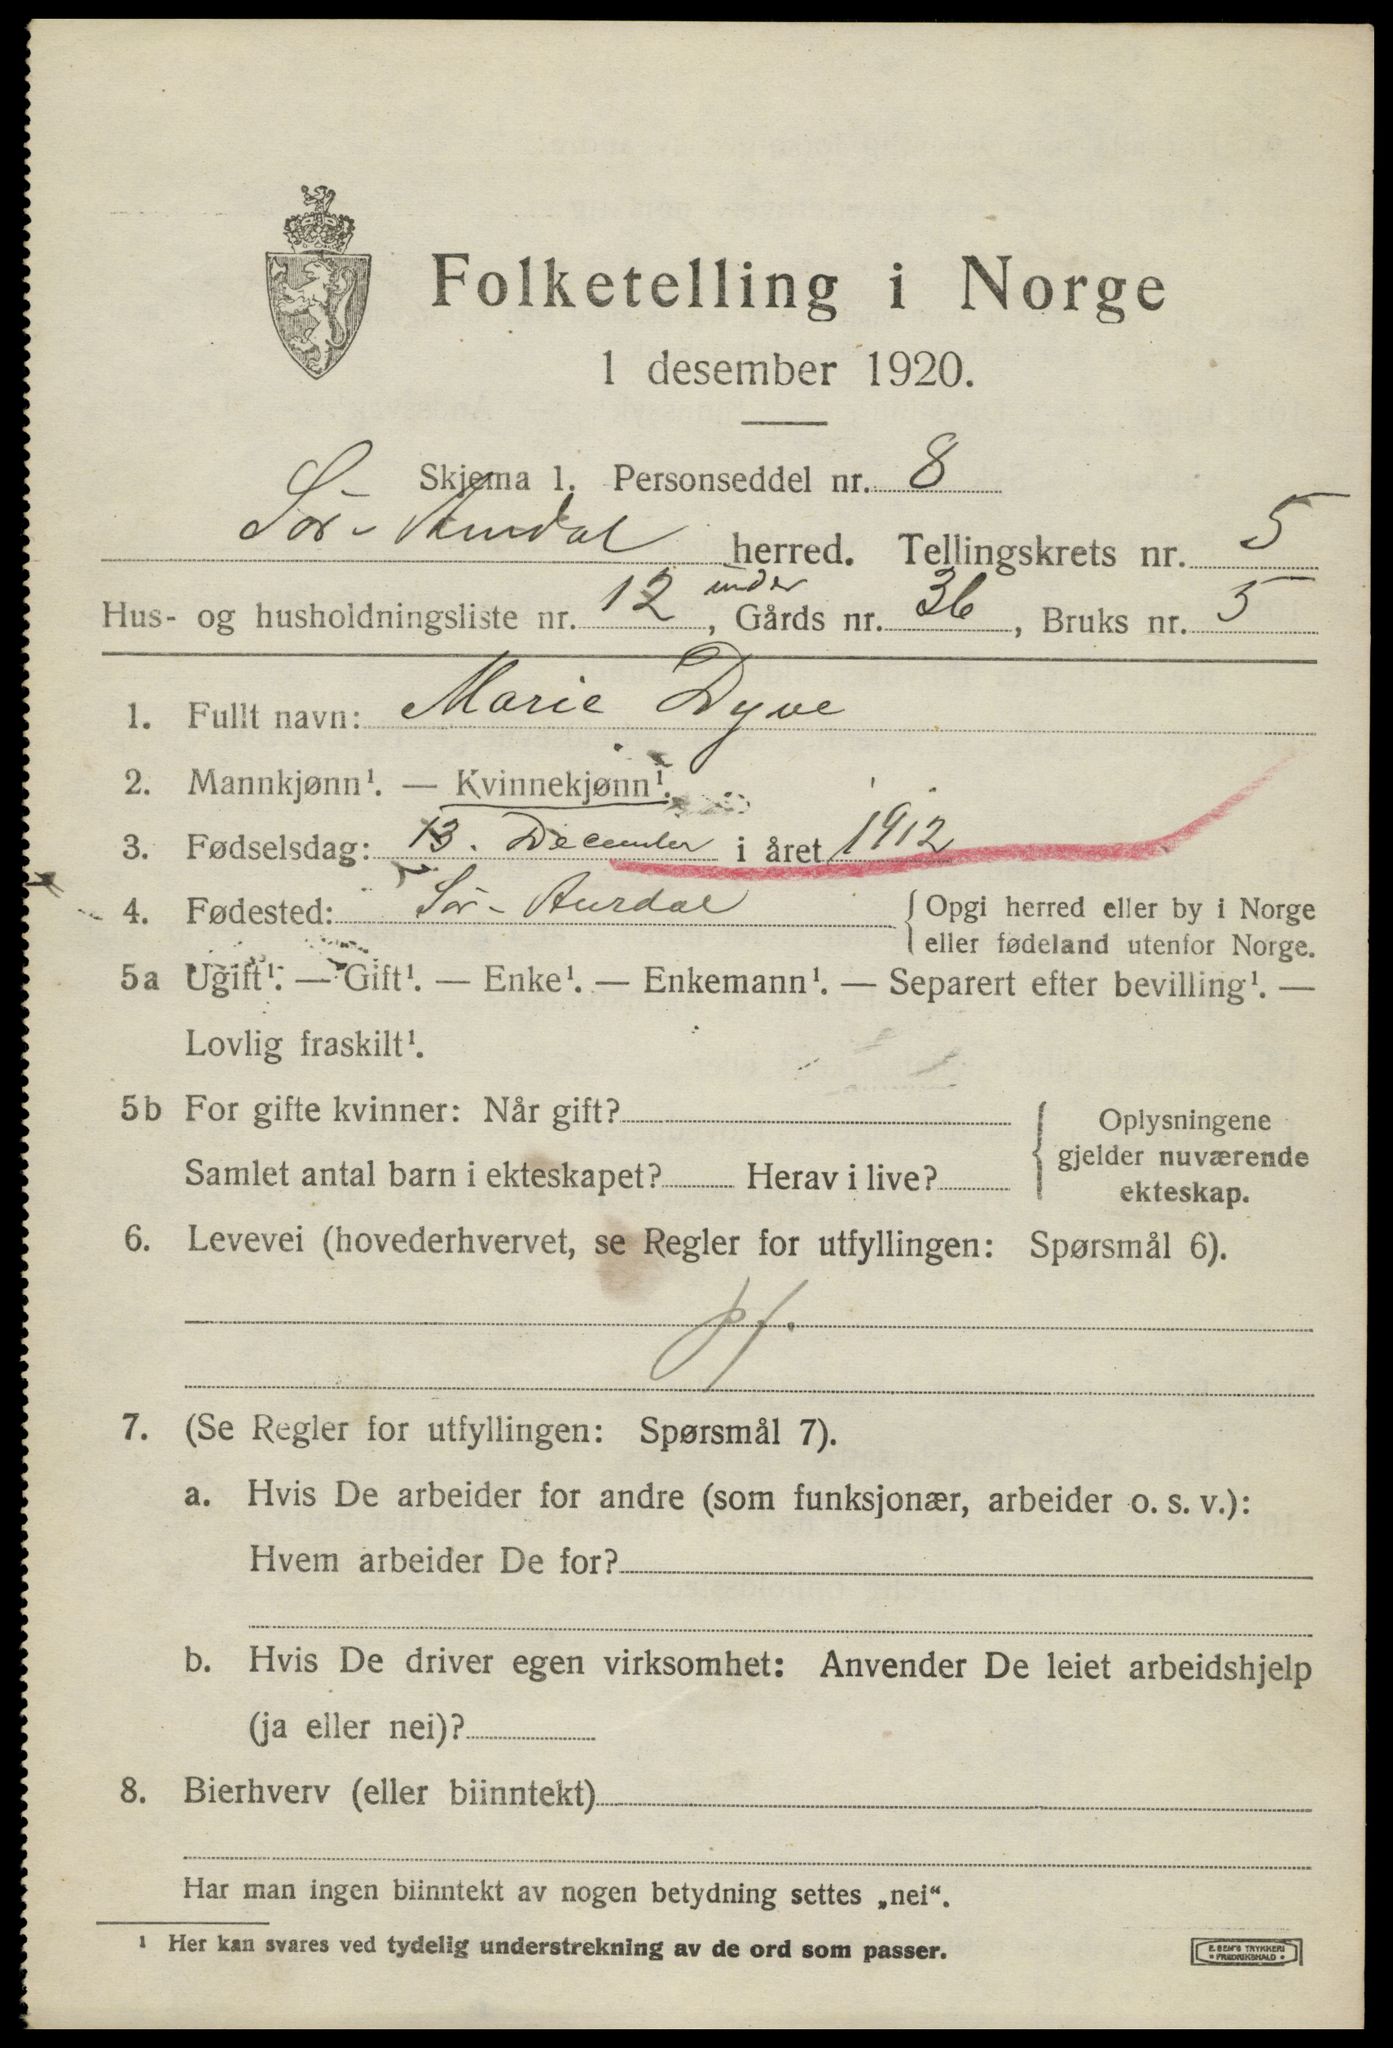 Folketelling i Norge
1 desember 1920.
Skjema 1. Personseddel nr. 8
Sør-Aurdal herred. Tellingskrets nr. 5
Hus- og husholdningsliste nr. 12 under, Gårds nr. 36, Bruks nr. 5
1. Fullt navn: Marie Dyve
2. Mannkjønn¹. — Kvinnekjønn¹.
3. Fødselsdag: 13. December i året 1912
4. Fødested: Sør-Aurdal { Opgi herred eller by i Norge
eller fødeland utenfor Norge.
5a Ugift¹. — Gift¹. — Enke¹. — Enkemann¹. — Separert efter bevilling¹. —
Lovlig fraskilt¹.
5b For gifte kvinner: Når gift? { Oplysningene
gjelder nuværende
Samlet antal barn i ekteskapet? Herav i live? ekteskap.
6. Levevei (hovederhvervet, se Regler for utfyllingen: Spørsmål 6).
pf.
7. (Se Regler for utfyllingen: Spørsmål 7).
a. Hvis De arbeider for andre (som funksjonær, arbeider o. s. v.):
Hvem arbeider De for?
b. Hvis De driver egen virksomhet: Anvender De leiet arbeidshjelp
(ja eller nei)?
8. Bierhverv (eller biinntekt)
Har man ingen biinntekt av nogen betydning settes „nei“.
¹ Her kan svares ved tydelig understrekning av de ord som passer.
E. SEM'S TRYKKERI
• FREDRIKSHALD •